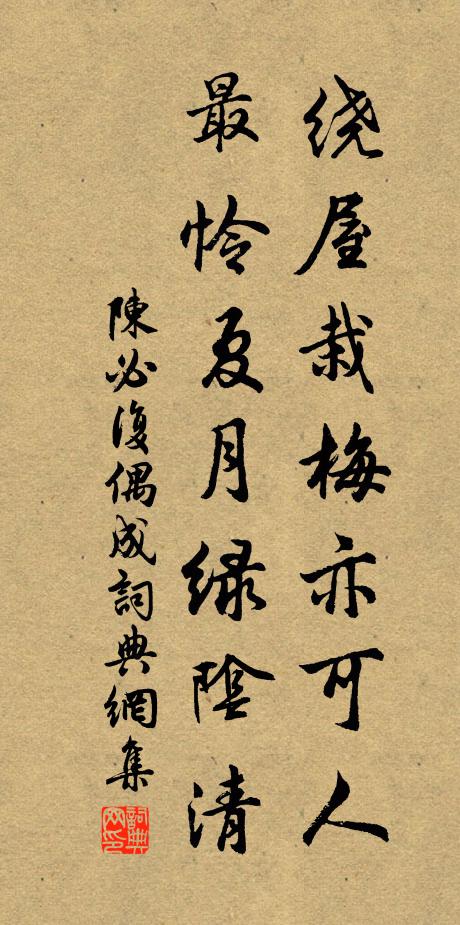 绕屋栽梅亦可人
最怜夏月绿阴清
陳必復偶成詞典網集
詞典网印